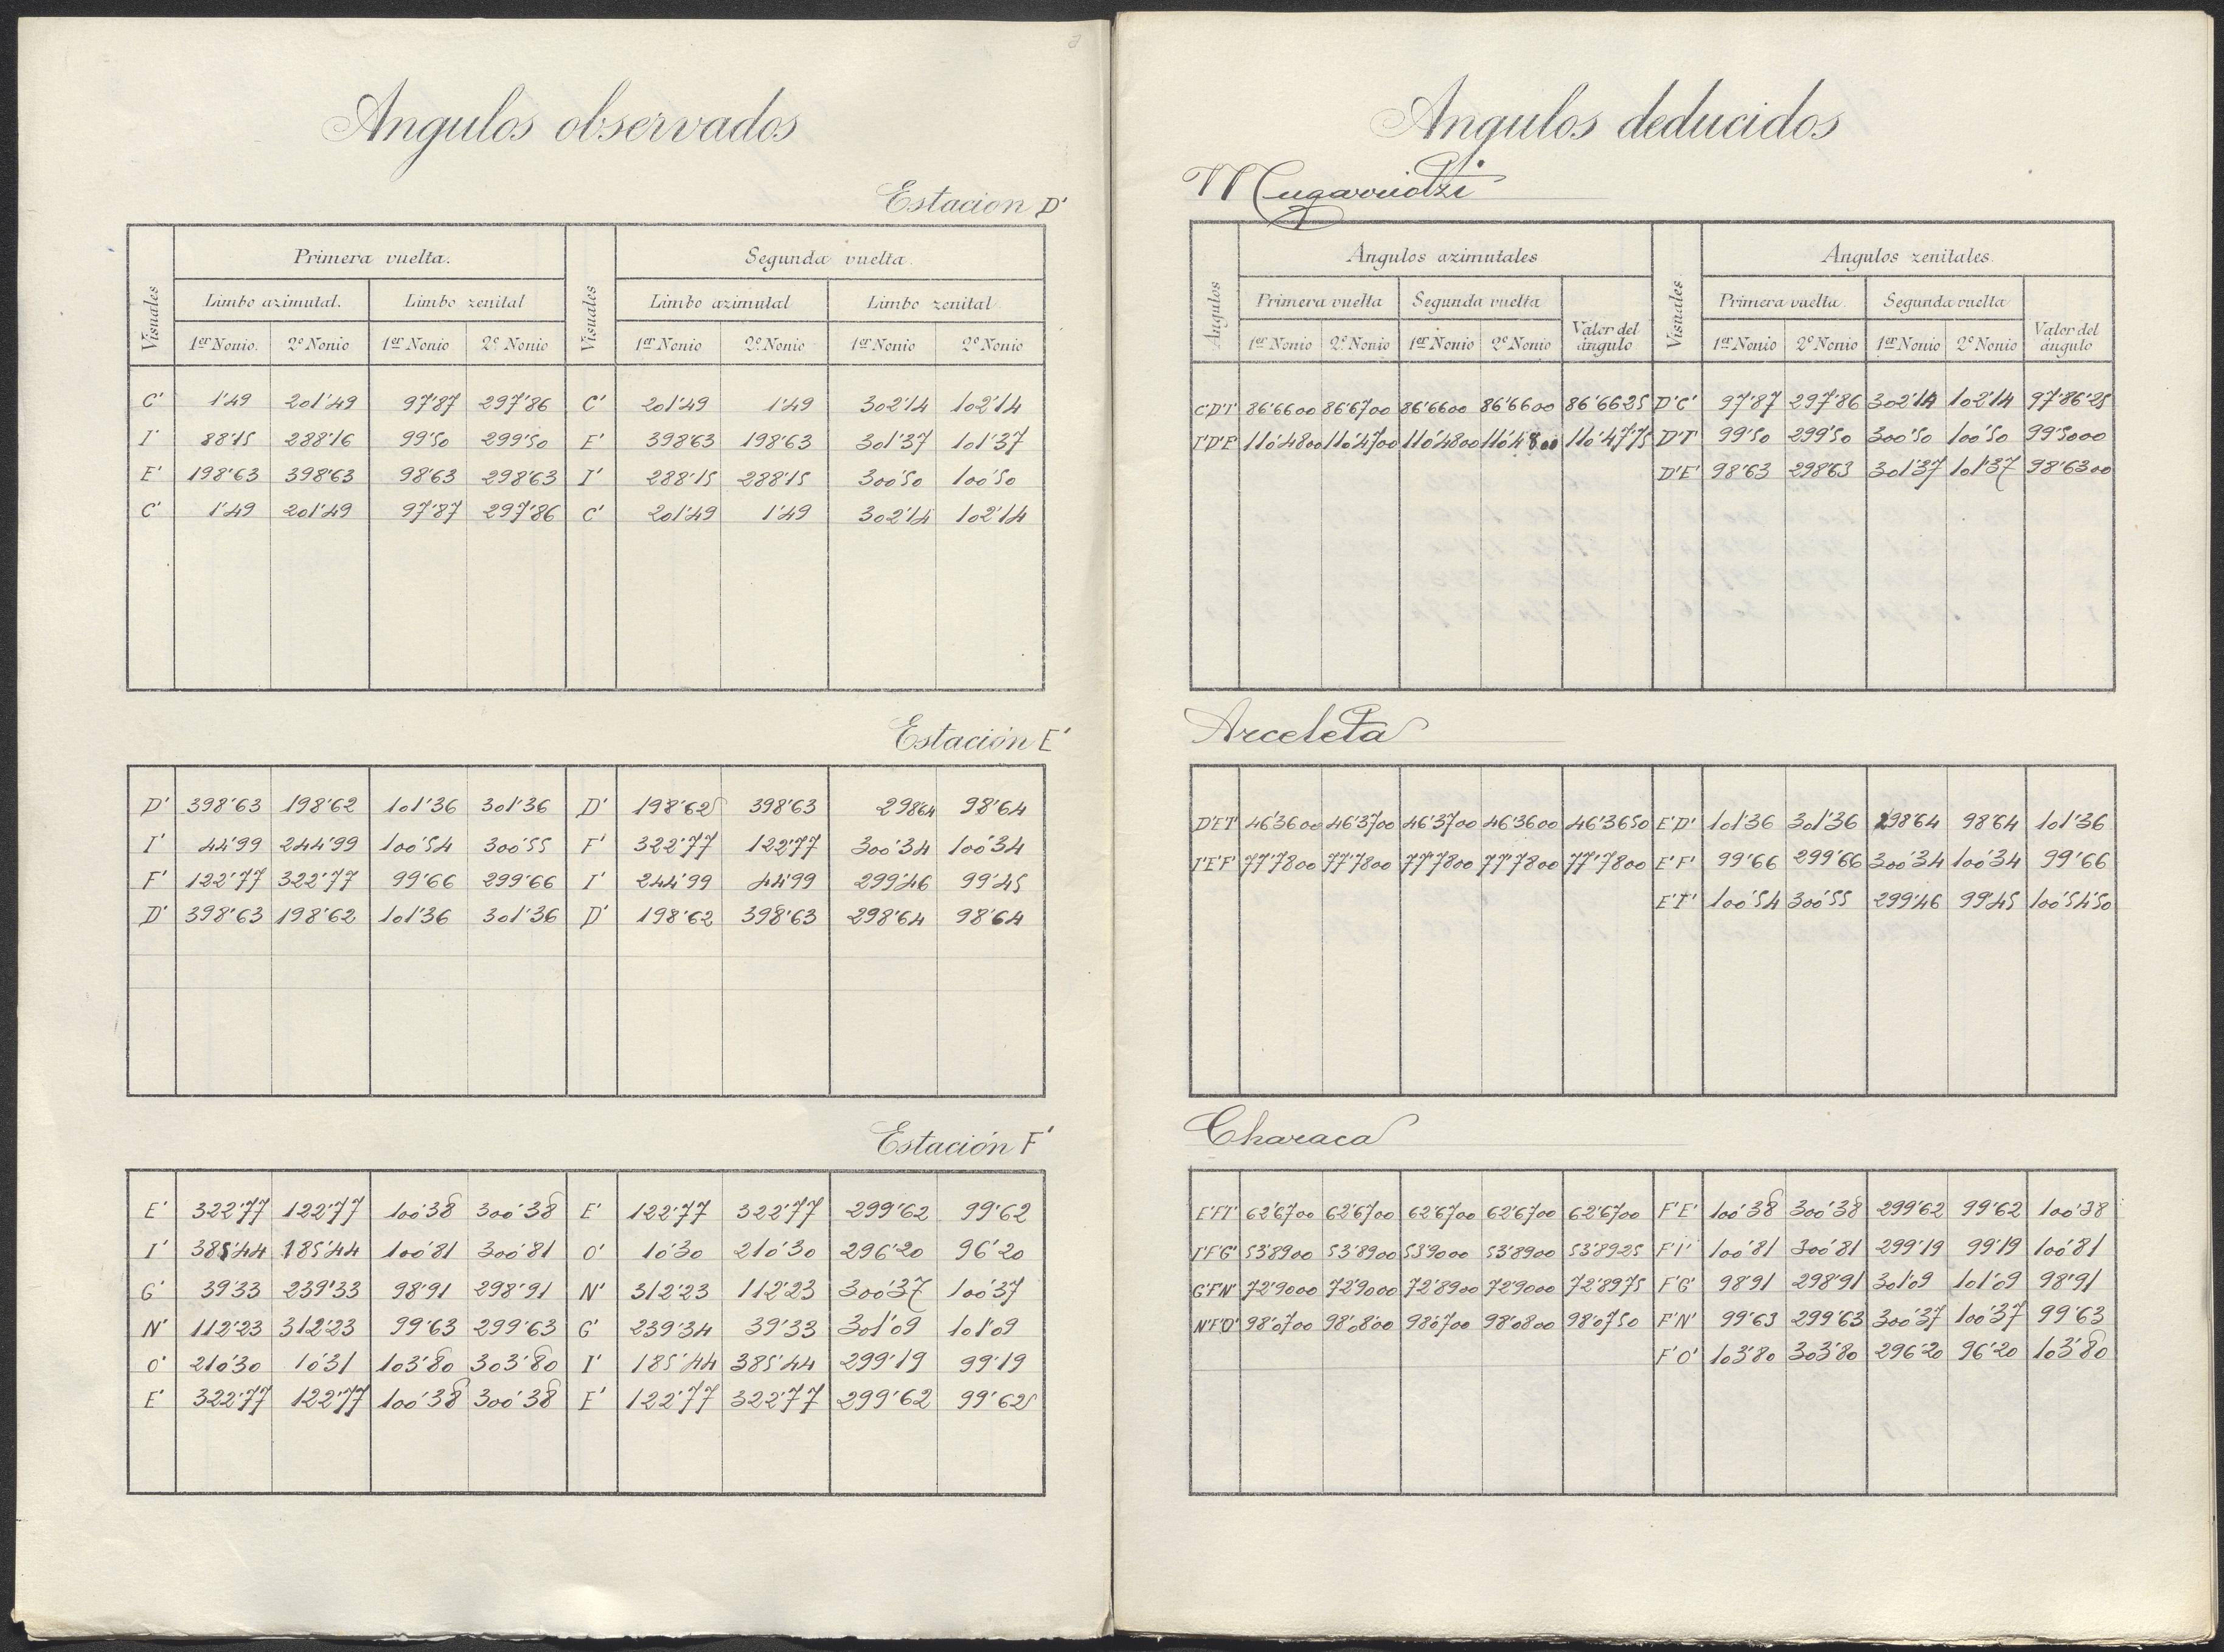 Angulos observados
Estacion D'
Visuales
Primera vuelta.
Visuales
Segunda vuelta.
Limbo azimutal. Limbo zenital Limbo azimutal Limbo zenital
1er Nonio. 2º Nonio 1er Nonio 2º Nonio 1er Nonio 2º Nonio 1er Nonio 2º Nonio
C' 1'49 201'49 97'87 297'86 C' 201'49 1'49 302'14 102'14
I' 88'15 288'16 99'50 299'50 E' 398'63 198'63 301'37 101'37
E' 198'63 398'63 98'63 298'63 I' 288'15 288'15 300'50 100'50
C' 1'49 201'49 97'87 297'86 C' 201'49 1'49 302'14 102'14
Estación E'
D' 398'63 198'62 101'36 301'36 D' 198'62 398'63 29864 98'64
I' 44'99 244'99 100'54 300'55 F' 322'77 122'77 300'34 100'34
F' 122'77 322'77 99'66 299'66 I' 244'99 44'99 299'46 99'45
D' 398'63 198'62 101'36 301'36 D' 198'62 398'63 298'64 98'64
Estación F'
E' 322'77 122'77 100'38 300'38 E' 122'77 322'77 299'62 99'62
I' 385'44 185'44 100'81 300'81 O' 10'30 210'30 296'20 96'20
G' 39'33 239'33 98'91 298'91 N' 312'23 112'23 300'37 100'37
N' 112'23 312'23 99'63 299'63 G' 239'34 39'33 301'09 101'09
O' 210'30 10'31 103'80 303'80 I' 185'44 385'44 299'19 99'19
E' 322'77 122'77 100'38 300'38 E' 122'77 322'77 299'62 99'62
Angulos deducidos
Mugarriotzi
Angulos
Angulos azimutales
Visuales
Angulos zenitales.
Primera vuelta Segunda vuelta Valor del ángulo Primera vuelta. Segunda vuelta Valor del ángulo
1er Nonio 2º Nonio 1er Nonio 2º Nonio 1er Nonio 2º Nonio 1er Nonio 2º Nonio
C'D'I' 86'6600 86'6700 86'6600 86'6600 86'6625 D'C' 97'87 297'86 302'14 102'14 97'86'25
I'D'E' 110'4800 110'4700 110'4800 110'4800 110'4775 D'I' 99'50 299'50 300'50 100'50 99'5000
D'E' 98'63 298'63 301'37 101'37 98'6300
Arceleta
D'E'I' 46'3600 46'3700 46'3700 46'3600 46'3650 E'D' 101'36 301'36 298'64 98'64 101'36
I'E'F' 77'7800 77'7800 77'7800 77'7800 77'7800 E'F' 99'66 299'66 300'34 100'34 99'66
E'I' 100'54 300'55 299'46 99'45 100'54'50
Characa
E'F'I' 62'6700 62'6700 62'6700 62'6700 62'6700 F'E' 100'38 300'38 299'62 99'62 100'38
I'F'G' 53'8900 53'8900 53'9000 53'8900 53'8925 F'I' 100'81 300'81 299'19 99'19 100'81
G'F'N' 72'9000 72'9000 72'8900 72'9000 72'8975 F'G' 98'91 298'91 301'09 101'09 98'91
N'F'O' 98'0700 98'0800 98'0700 98'0800 98'0750 F'N' 99'63 299'63 300'37 100'37 99'63
F'O' 103'80 303'80 296'20 96'20 103'80